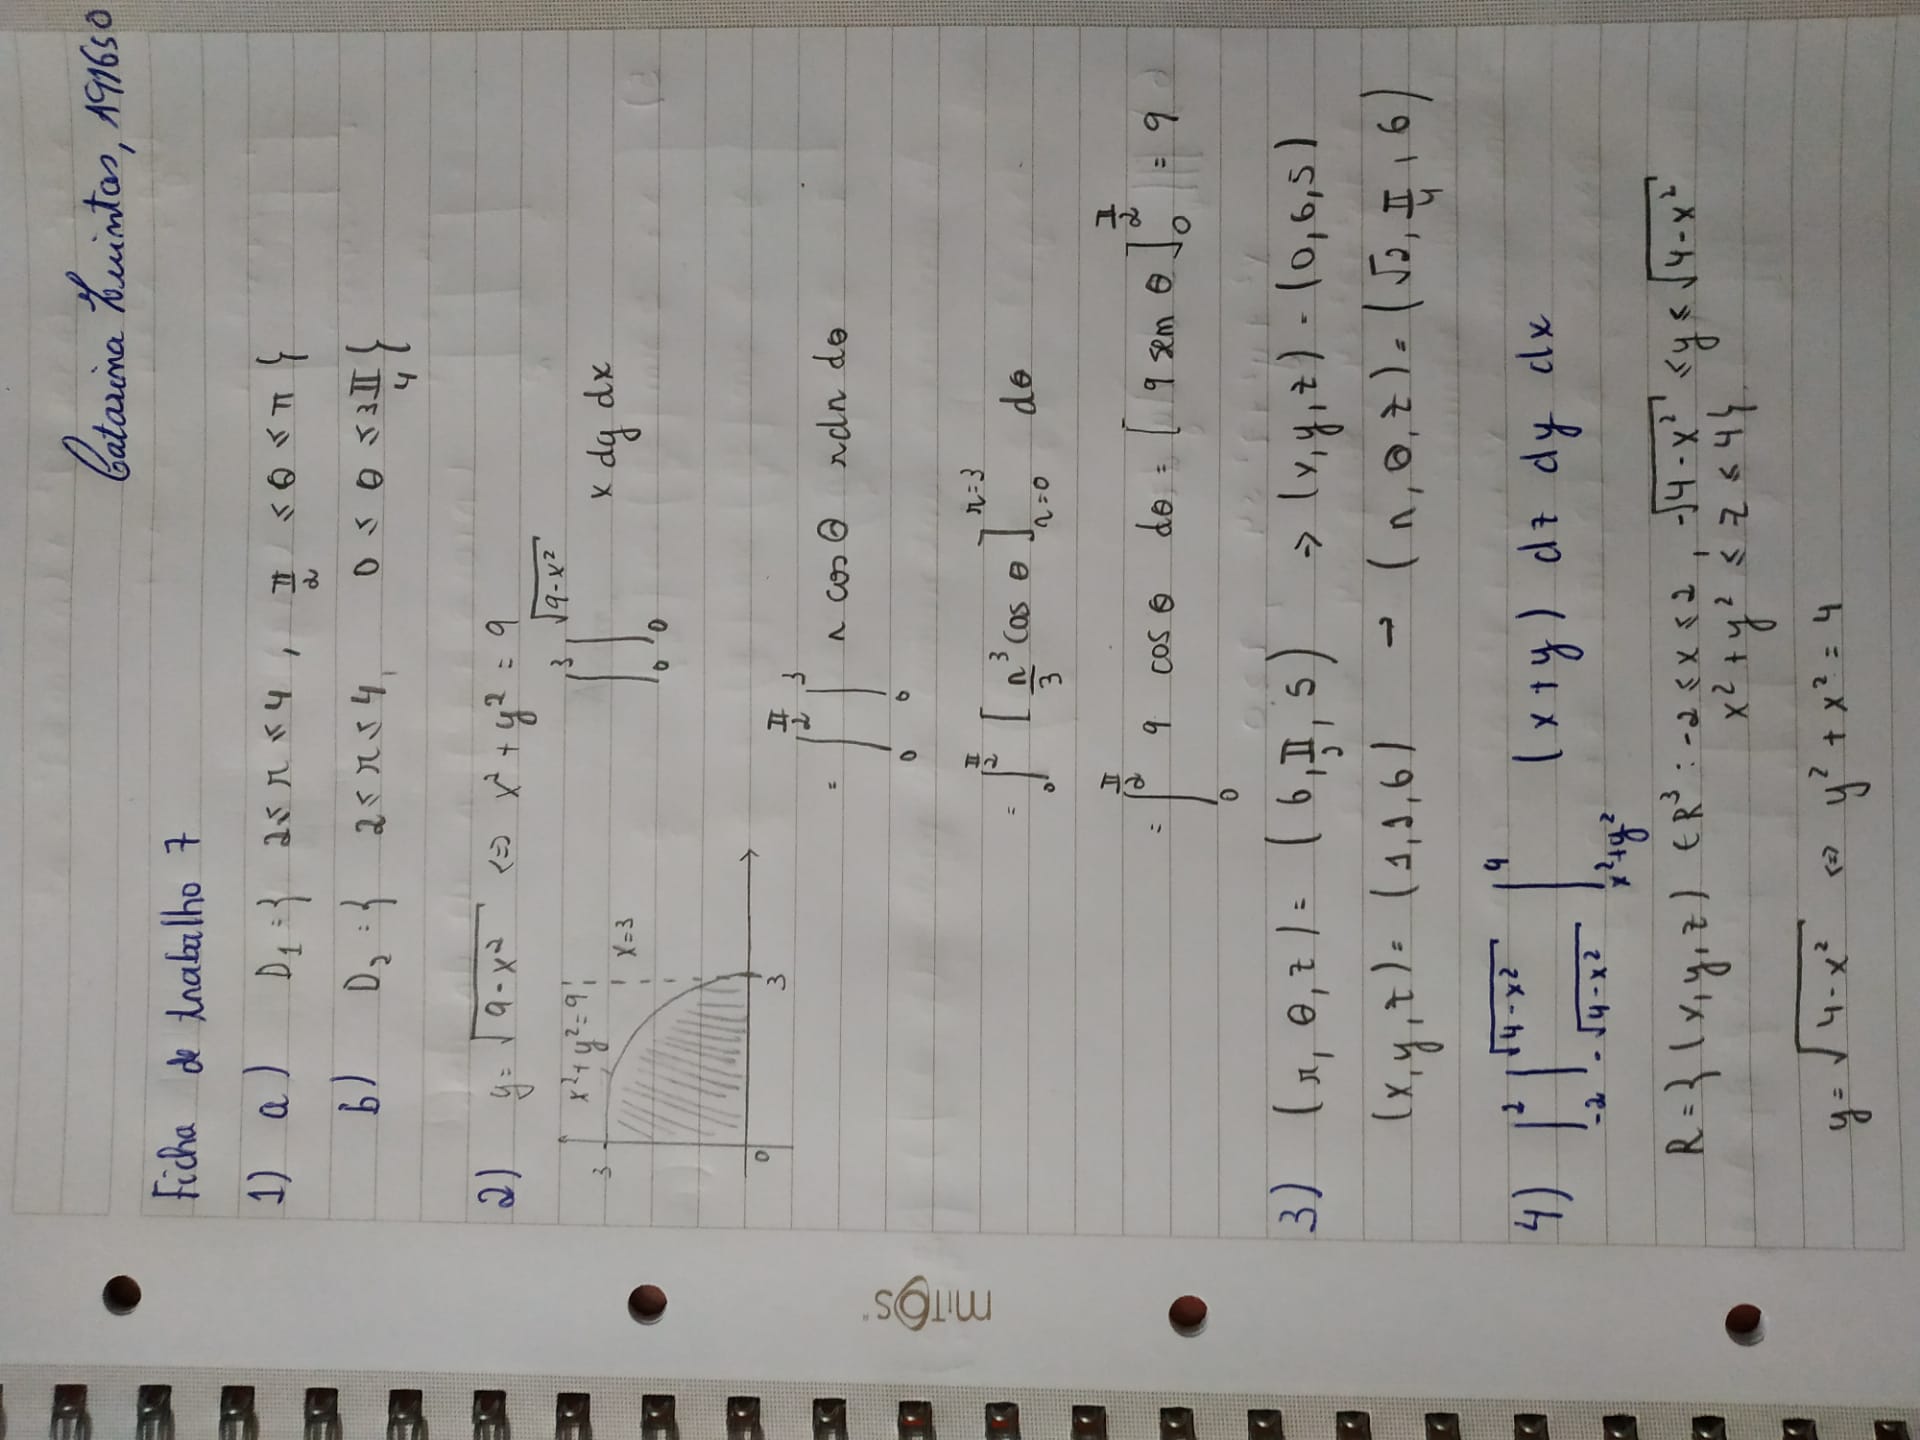 Catarina Quintas, A91650
Ficha de trabalho 7
1) a) D₁ = { 2 ≤ r ≤ 4 , π/2 ≤ θ ≤ π }
b) D₂ = { 2 ≤ r ≤ 4, 0 ≤ θ ≤ 3π/4 }
2) y = √(9-x²) <=> x² + y² = 9
x² + y² = 9
x=3
3
0
3
∫₀³ ∫₀^√(9-x²) x dy dx
= ∫₀^(π/2) ∫₀³ r cos θ r dr dθ
= ∫₀^(π/2) [ r³/3 cos θ ]_(r=0)^(r=3) dθ
= ∫₀^(π/2) 9 cos θ dθ = [ 9 sen θ ]₀^(π/2) = 9
3) (r, θ, z) = (6, π/2, 5) => (x, y, z) = (0, 6, 5)
(x, y, z) = (1, 1, 6) → (r, θ, z) = (√2, π/4, 6)
4) ∫₋₂² ∫_(-√(4-x²))^(√(4-x²)) ∫_(x²+y²)^4 (x+y) dz dy dx
R = { (x, y, z) ∈ R³ : -2 ≤ x ≤ 2 , -√(4-x²) ≤ y ≤ √(4-x²)
x² + y² ≤ z ≤ 4 }
y = √(4-x²) <=> y² + x² = 4
mitos